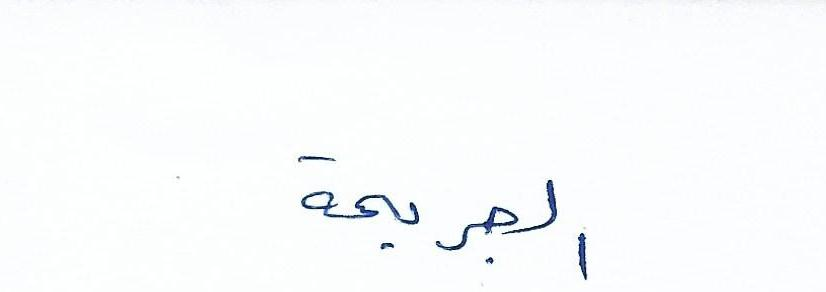 الجريمة